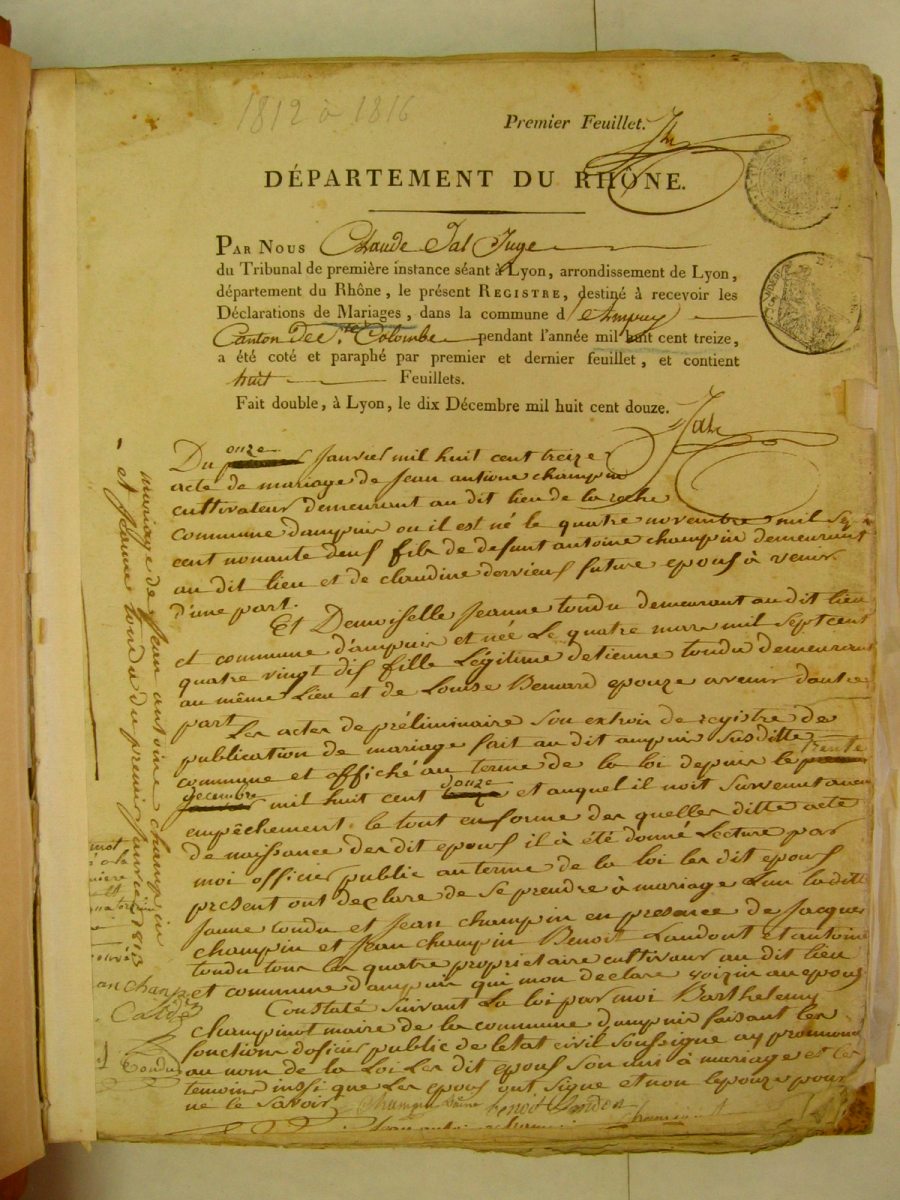 1812 à 1816
Premier Feuillet.
DÉPARTEMENT DU RHÔNE.
PAR NOUS Claude Jal Juge
du Tribunal de première instance séant à Lyon, arrondissement de Lyon,
département du Rhône, le présent REGISTRE, destiné à recevoir les
Déclarations de Mariages, dans la commune d'Ampuy
Canton de Ste Colombe pendant l'année mil huit cent treize,
a été coté et paraphé par premier et dernier feuillet, et contient
huit Feuillets.
Fait double, à Lyon, le dix Décembre mil huit cent douze.
Jal
Du onze Janvier mil huit cent treize
acte de mariage de Jean antoine champin
cultivateur demeurant au dit lieu de la roche
commune dampuis ou il est né le quatre novembre mil sep
cent nonante deus fils de defunt antoine champin demeurant
au dit lieu et de claudine dervieus future epous à venir
d'une part.
Et Demoiselle Jeanne tondu demeurant au dit lieu
et commune d'ampuis et née Le quatre mars mil sept cent
quatre vingt dis fille Légitime detienne tondu demeurant
au même Lieu et de Louise Bernard epouze avenir dautre
part
Les actes de préliminaire son extrois de registre de
publication de mariage fait au dit ampuis susditte
commune et affiché au terme de la loi depuis le trente
decembre mil huit cent douze et auquel il noit survenut aucun
empêchement le tout en forme des quelles ditte acte
de naissance des dit epous il à été donné Lecture par
moi officier public au terme de la loi les dit epous
present ont declare de se prendre à mariage Lun la ditte
Janne tondu et Jean champin en presence de Jacques
champin et Jean champin Benoit Landont et antoine
tondu tous les quatre propriétaire cultivaur au dit lieu
et commune dampuis qui mon declare voizin au epous
Constaté suivant La loi par moi Barthelemy
champinot maire de la commune dampuis faisant les
fonctions doficier public de letat civil soussigne ay prononcé
au nom de la Loi Les dit epous son uni à mariage et les
temoins inssi que Les epous ont signe et non lepouze pour
ne le savoir
champin benoit Landon
mariage de Jean antoine champin
et Jeanne tondu du premier janvier 1813
tondu